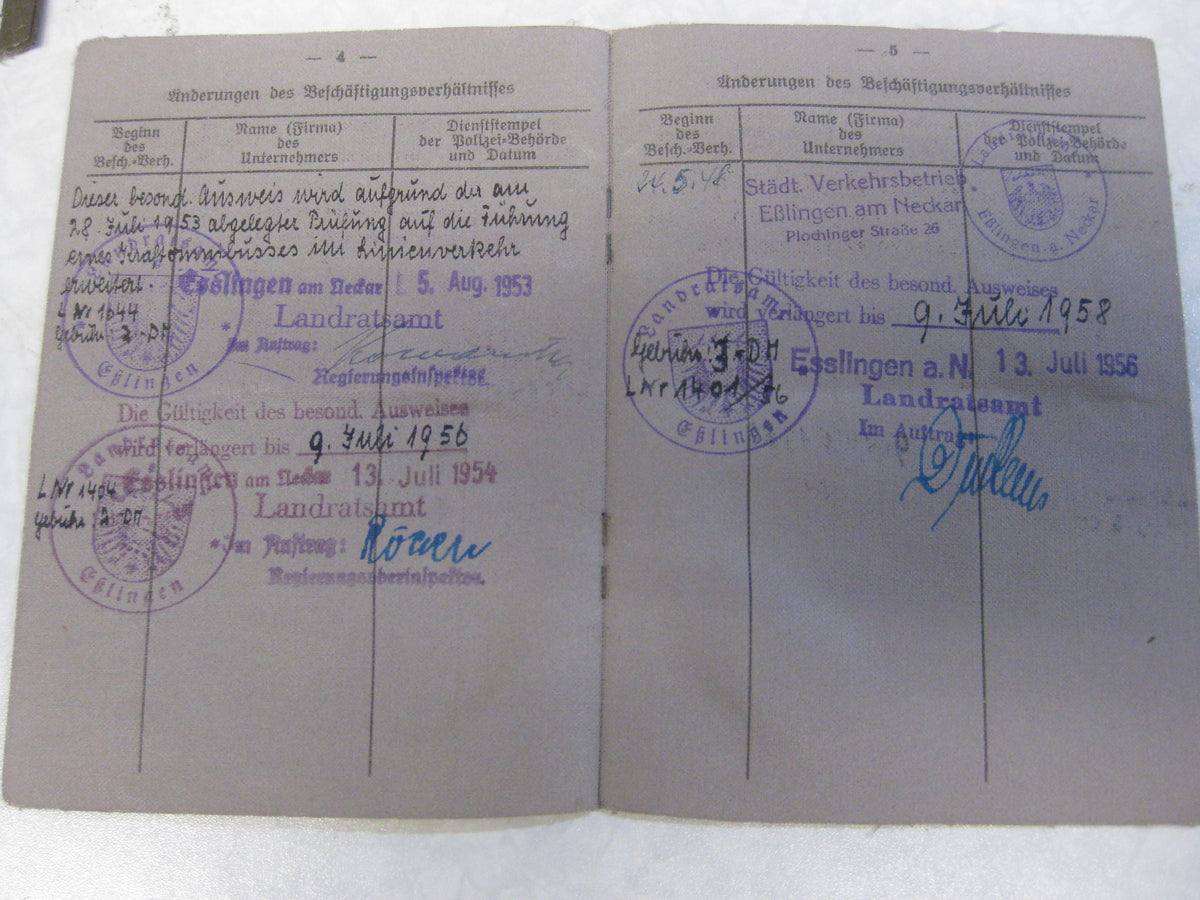 — 4 —
Änderungen des Beschäftigungsverhältnisses
Beginn
des
Besch.-Verh.
Name (Firma)
des
Unternehmers
Dienststempel
der Polizei-Behörde
und Datum
Dieser besond. Ausweis wird aufgrund der am
28. Juli 1953 abgelegter Prüfung auf die Führung
eines Kraftomnibusses im Linienverkehr
erweitert.
Esslingen am Neckar 5. Aug. 1953
L Nr 1644
Landratsamt
Gebühr 2-DM
Im Auftrag:
Regierungsinspektor
Landratsamt
Eßlingen
Die Gültigkeit des besond. Ausweises
wird verlängert bis 9. Juli 1956
Esslingen am Neckar 13. Juli 1954
L Nr 1404
Landratsamt
Gebühr 2-DM
Im Auftrag:
Regierungsoberinspektor
Landratsamt
Eßlingen
— 5 —
Änderungen des Beschäftigungsverhältnisses
Beginn
des
Besch.-Verh.
Name (Firma)
des
Unternehmers
Dienststempel
der Polizei-Behörde
und Datum
24.5.48
Städt. Verkehrsbetrieb
Eßlingen am Neckar
Plochinger Straße 26
Eßlingen a. Neckar
Die Gültigkeit des besond. Ausweises
wird verlängert bis 9. Juli 1958
Gebühr: 3-DM
Esslingen a. N. 13. Juli 1956
L Nr 1401/56
Landratsamt
Im Auftrag
Landratsamt
Eßlingen